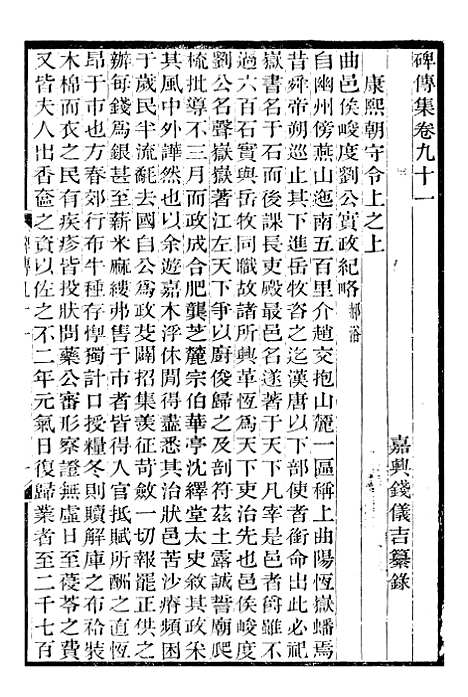 碑傳集卷九十一
嘉興錢儀吉纂錄
康熙朝守令上之上
曲邑侯峻度劉公實政紀略 郝浴
自幽州傍燕山迤南五百里介趙交抱山麓一區稱上曲陽恆嶽蟠焉
昔舜帝朔巡止其下進岳牧咨之迄漢唐以下部使者銜命出必祀
嶽書名于石而後課長吏殿最邑名遂著于天下凡宰是邑者爵雖不
過六百石實與岳牧同職故諸所興革恆爲天下吏治先也邑侯峻度
劉公名聲嶽嶽著江左天下爭以廚俊歸之及剖符茲土露誠誓廟爬
梳批導不三月而政成合肥龔芝麓宗伯華亭沈繹堂太史敘其政采
其風中外譁然也以余遊嘉木浮休閒得盡悉其治狀邑苦沙瘠頻困
于歲民半流離去國自公爲政芟闢招集羨征苛斂一切報罷正供之
辦每錢爲銀甚至薪米麻縷弗售于市者皆得入官抵賦所酬之直恆
昂于市也方春郊行布牛種存惸獨計口授糧冬則贖解庫之布袷裝
木棉而衣民有疾疹皆投狀問藥公審形察證無虛日至葠苓之費
又皆夫人出香奩之資以佐之不二年元氣日復歸業者至二千七百